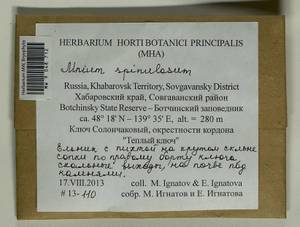 HERBARIUM HORTI BOTANICI PRINCIPALIS
(MHA)
Mnium spinulosum
Russia, Khabarovsk Territory, Sovgavansky District
Хабаровский край, Совгаванский район
Botchinsky State Reserve – Ботчинский заповедник
ca. 48° 18' N – 139° 35' E, alt. = 280 m
Ключ Солончаковый, окрестности кордона
"Теплый ключ"
Ельник с пихтой на крутом склоне
сопки по правому борту ключа
скальные выходы, на почве под
камнями.
17.VIII.2013 coll. M. Ignatov & E. Ignatova
# 13-110 собр. М. Игнатов и Е. Игнатова